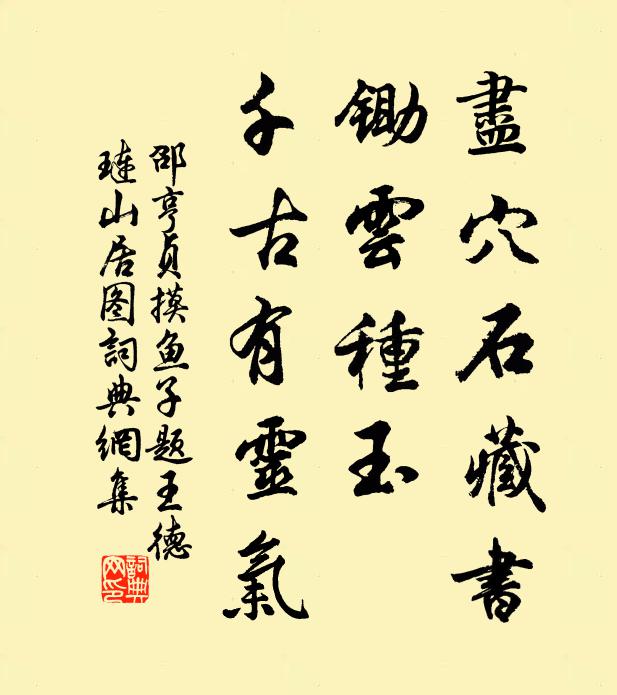 盡穴石藏書
鋤雲種玉
千古有靈氣
邵亨貞摸魚子題王德
璉山居图詞典網集
詞典网印